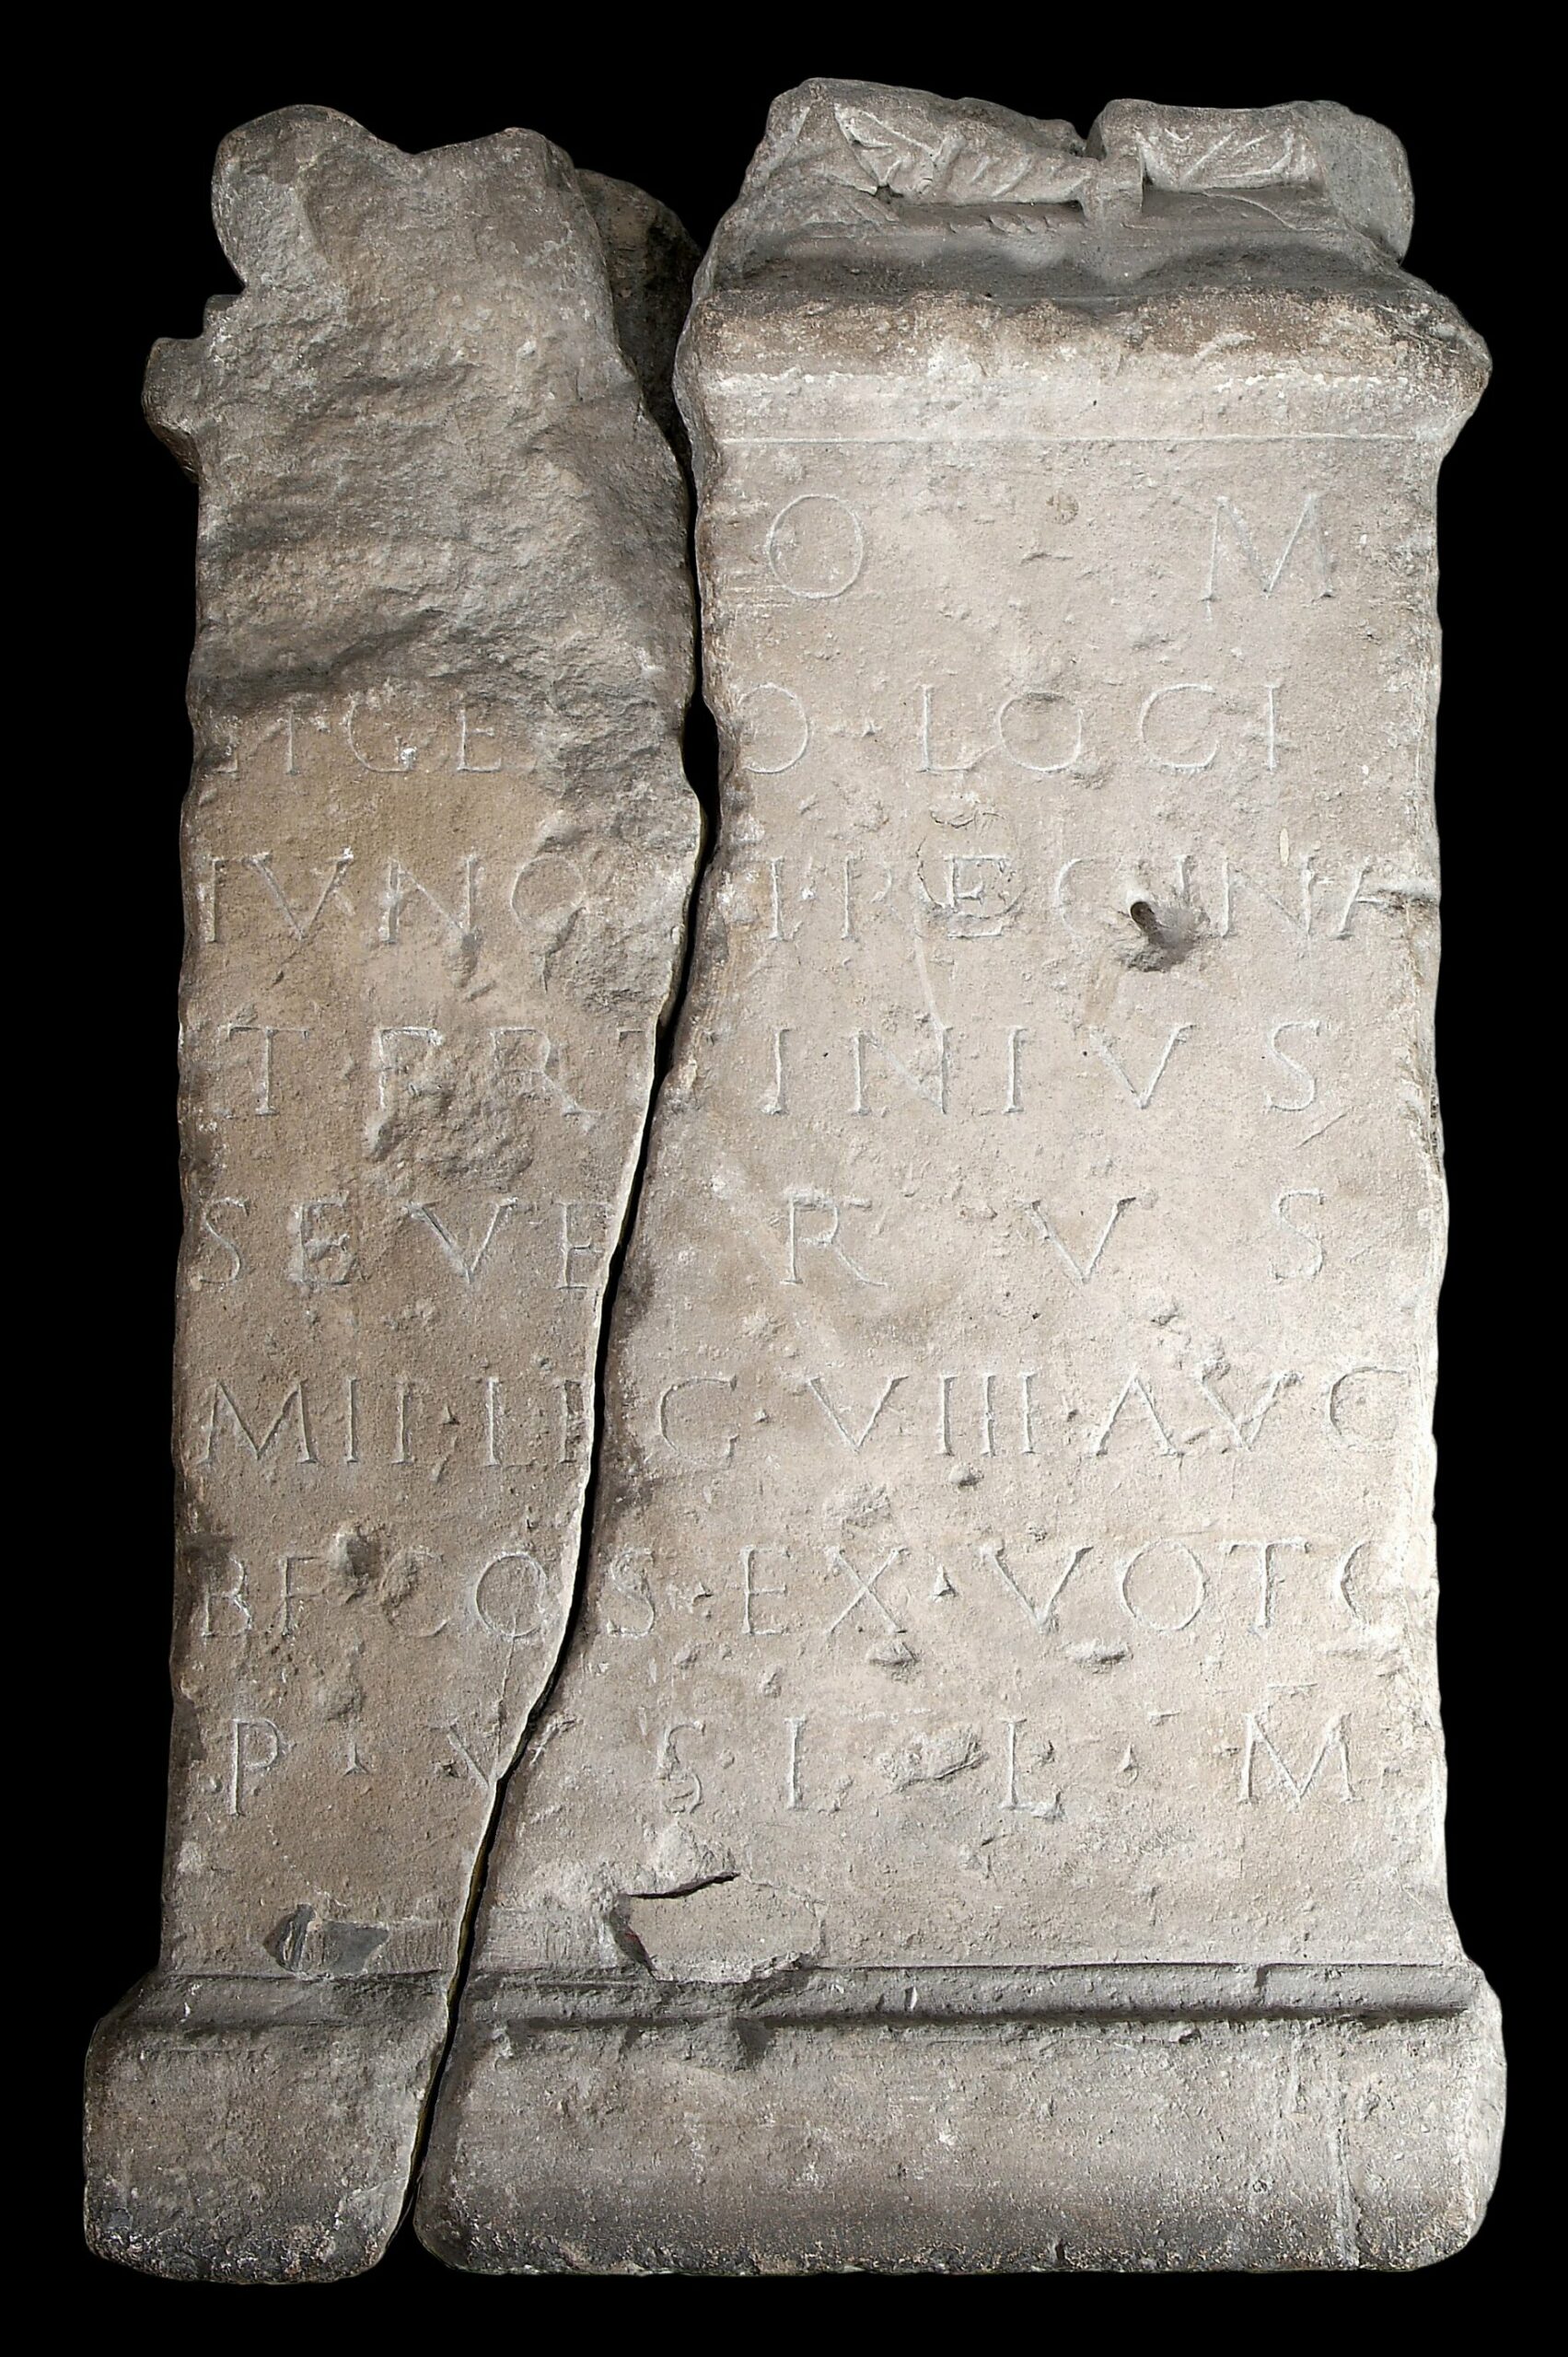 O M
ET · GE O · LOCI
IVNO I · REGINA
T · PERTINIVS
SEVERVS
MIL · LEG · VIII · AVG
BF · COS · EX · VOTO
P · V · S · L · L · M